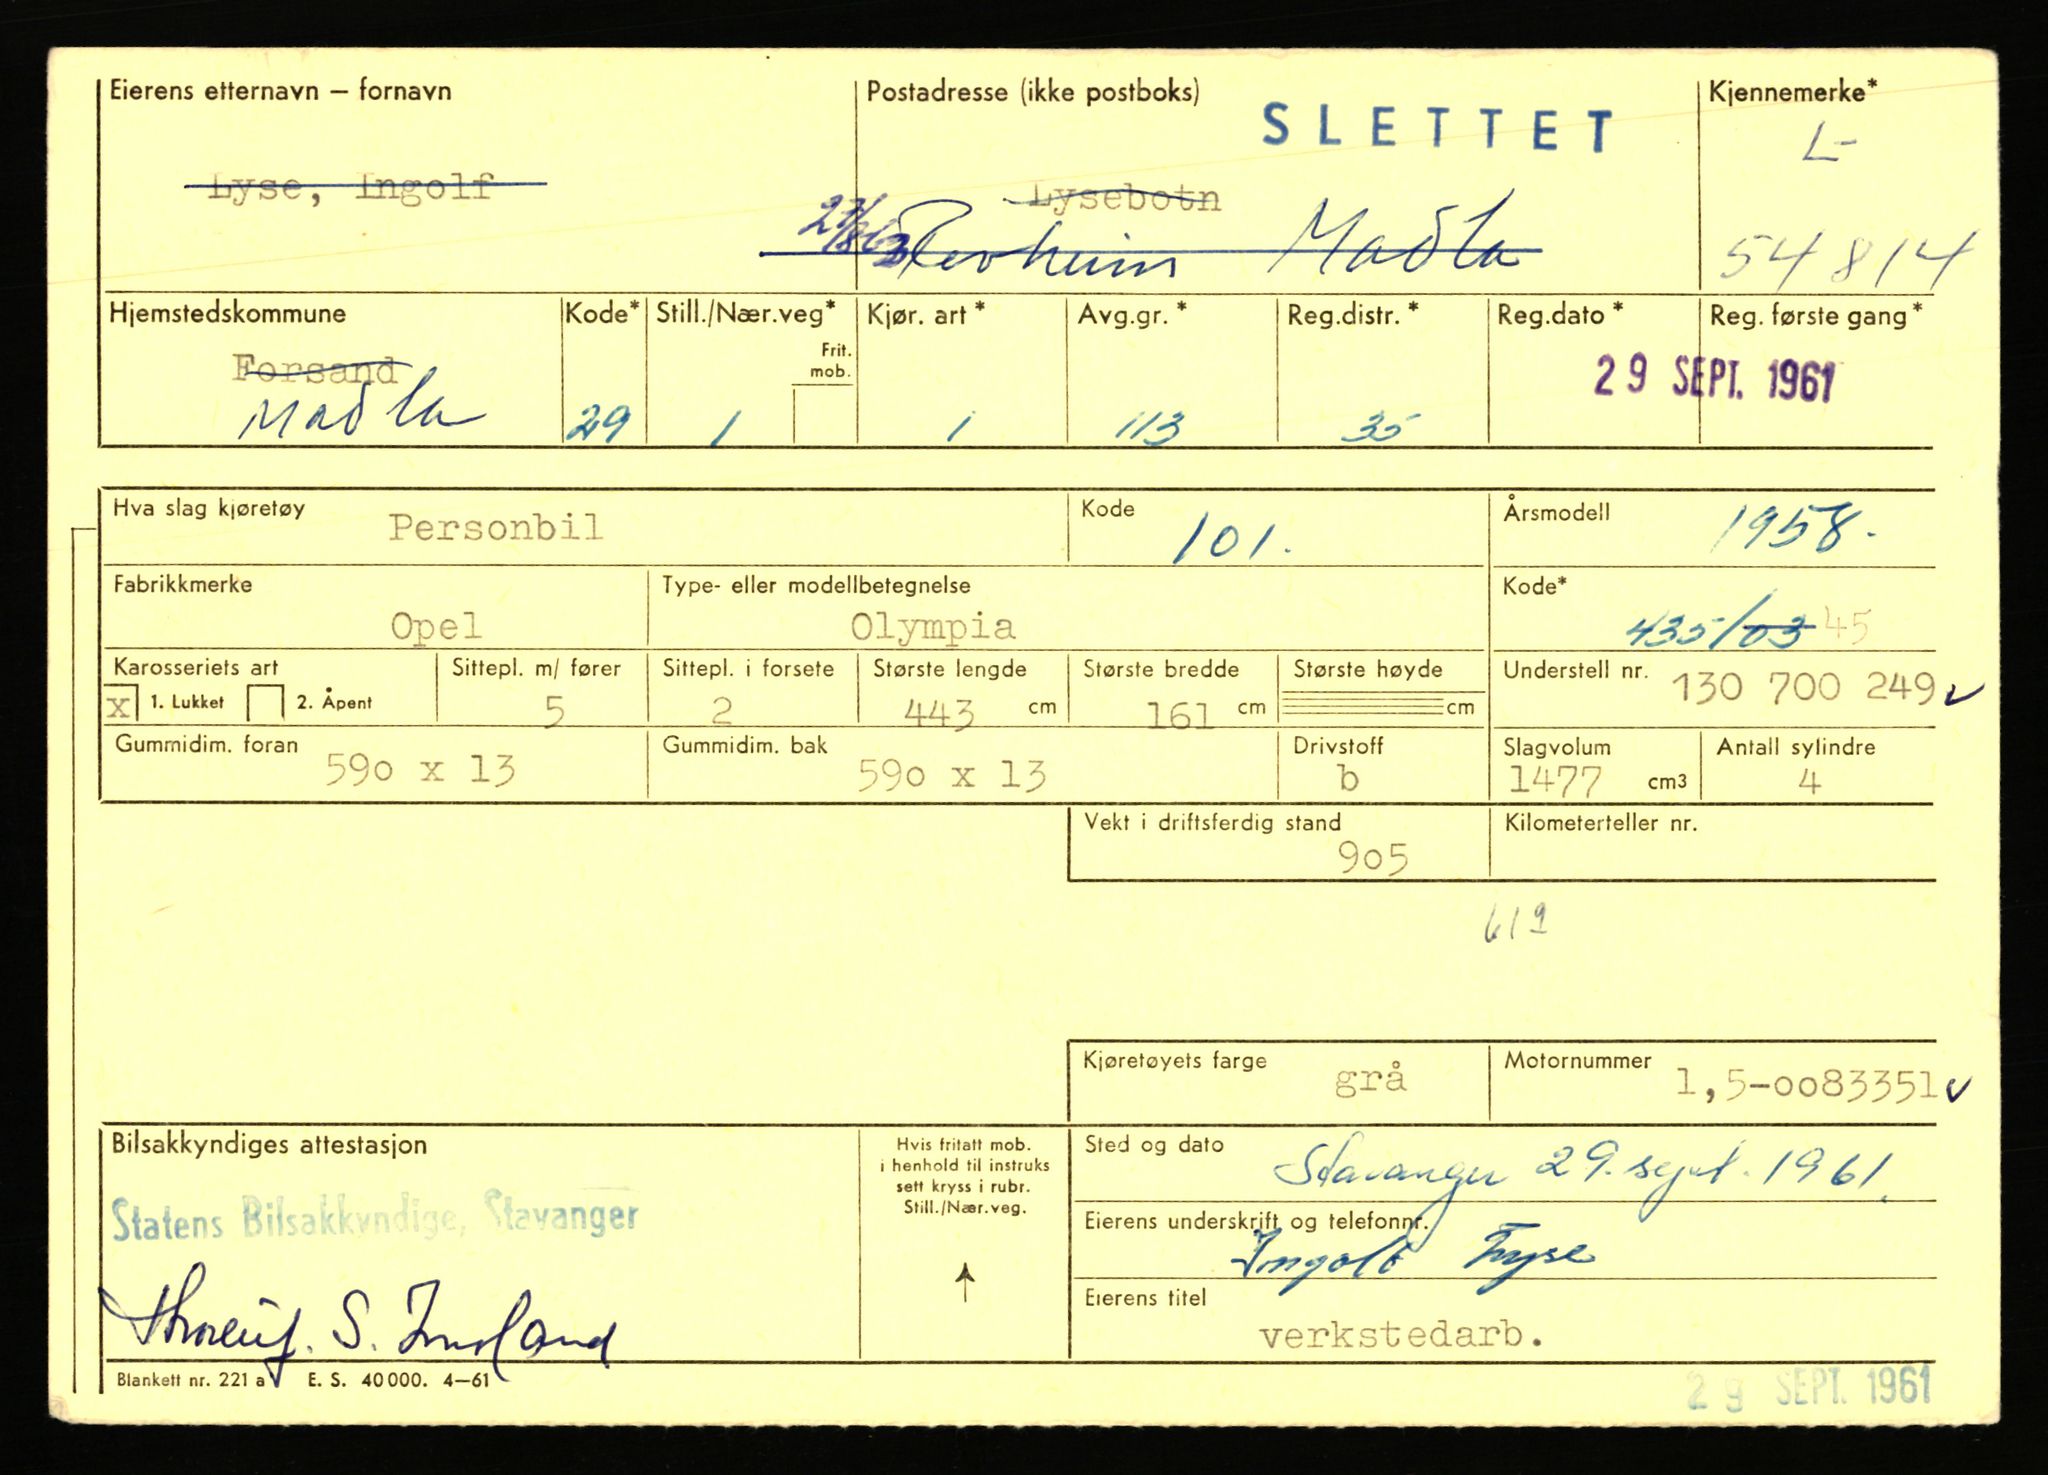 Eierens etternavn – fornavn
Postadresse (ikke postboks)
SLETTET
Kjennemerke*
L-
Lyse, Ingolf
Lysebotn
Revheim Madla
54814
Hjemstedskommune
Kode*
Still./Nær.veg*
Frit.
mob.
Kjør. art *
Avg.gr. *
Reg.distr. *
Reg.dato *
Reg. første gang *
Forsand
Madla
29
1
1
113
35
29 SEPT. 1961
Hva slag kjøretøy
Personbil
Kode
101.
Årsmodell
1958.
Fabrikkmerke
Opel
Type- eller modellbetegnelse
Olympia
Kode*
435/03 45
Karosseriets art
x 1. Lukket 2. Åpent
Sittepl. m/ fører
5
Sittepl. i forsete
2
Største lengde
443 cm
Største bredde
161 cm
Største høyde
cm
Understell nr.
130 700 249
Gummidim. foran
590 x 13
Gummidim. bak
590 x 13
Drivstoff
b
Slagvolum
1477 cm3
Antall sylindre
4
Vekt i driftsferdig stand
905
Kilometerteller nr.
619
Kjøretøyets farge
grå
Motornummer
1,5-0083351
Bilsakkyndiges attestasjon
Statens Bilsakkyndige, Stavanger
Hvis fritatt mob.
i henhold til instruks
sett kryss i rubr.
Still./Nær.veg.
Sted og dato
Stavanger 29. sept. 1961.
Eierens underskrift og telefonnr.
Ingolf Lyse
Eierens titel
verkstedarb.
Blankett nr. 221 a E. S. 40 000. 4–61
29 SEPT. 1961